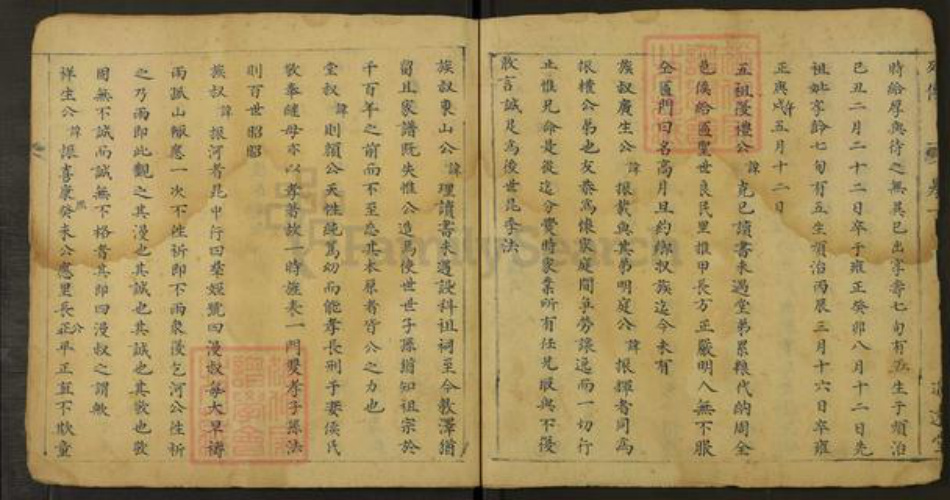 時給厚與待之無異己出享壽七旬有五生于順治
己丑二月二十二日卒于雍正癸卯八月十二日先
祖妣享齡七旬有五生順治丙辰三月十六日卒雍
正庚戌年五月十二日
五祖 禮公諱克己讀書未遇堂弟累粮代納周全
邑侯給匾聖世良民里推甲長方正嚴明人無不服
全匾門曰名高月旦約綁权族迄今未有
族叔廣生公諱振戴與其弟明庭公諱振輝者同為
振權公弟也友恭為懷家庭間爭勞讓逸而一切行
止惟兄命是從迄分爨時家業所有任兄取與不復
敢言誠足為後世昆季法
族叔東山公諱理讀書未遇設科祖祠至今教澤猶
留且家譜既失惟公造焉使世世子孫猶知祖宗於
千百年之前而不至忘其本原者皆公之力也
堂叔諱則顯公天性純篤幼而能孝長刑于妻侯氏
敬奉繼母亦以孝著故一時旌表一門雙孝子孫法
則百世昭昭
族叔諱振河者昆中行四輩短號四漫叔每大旱禱
雨誠山顯應一次不往祈即不雨衆復乞河公往祈
之乃雨即此觀之其漫也其誠也其誠也其敬也敬
固無不誠而誠無不格者其即四漫叔之謂歟
祥生公諱振喜康熙癸未公應里長公正平正直不欺童
FamilySearch